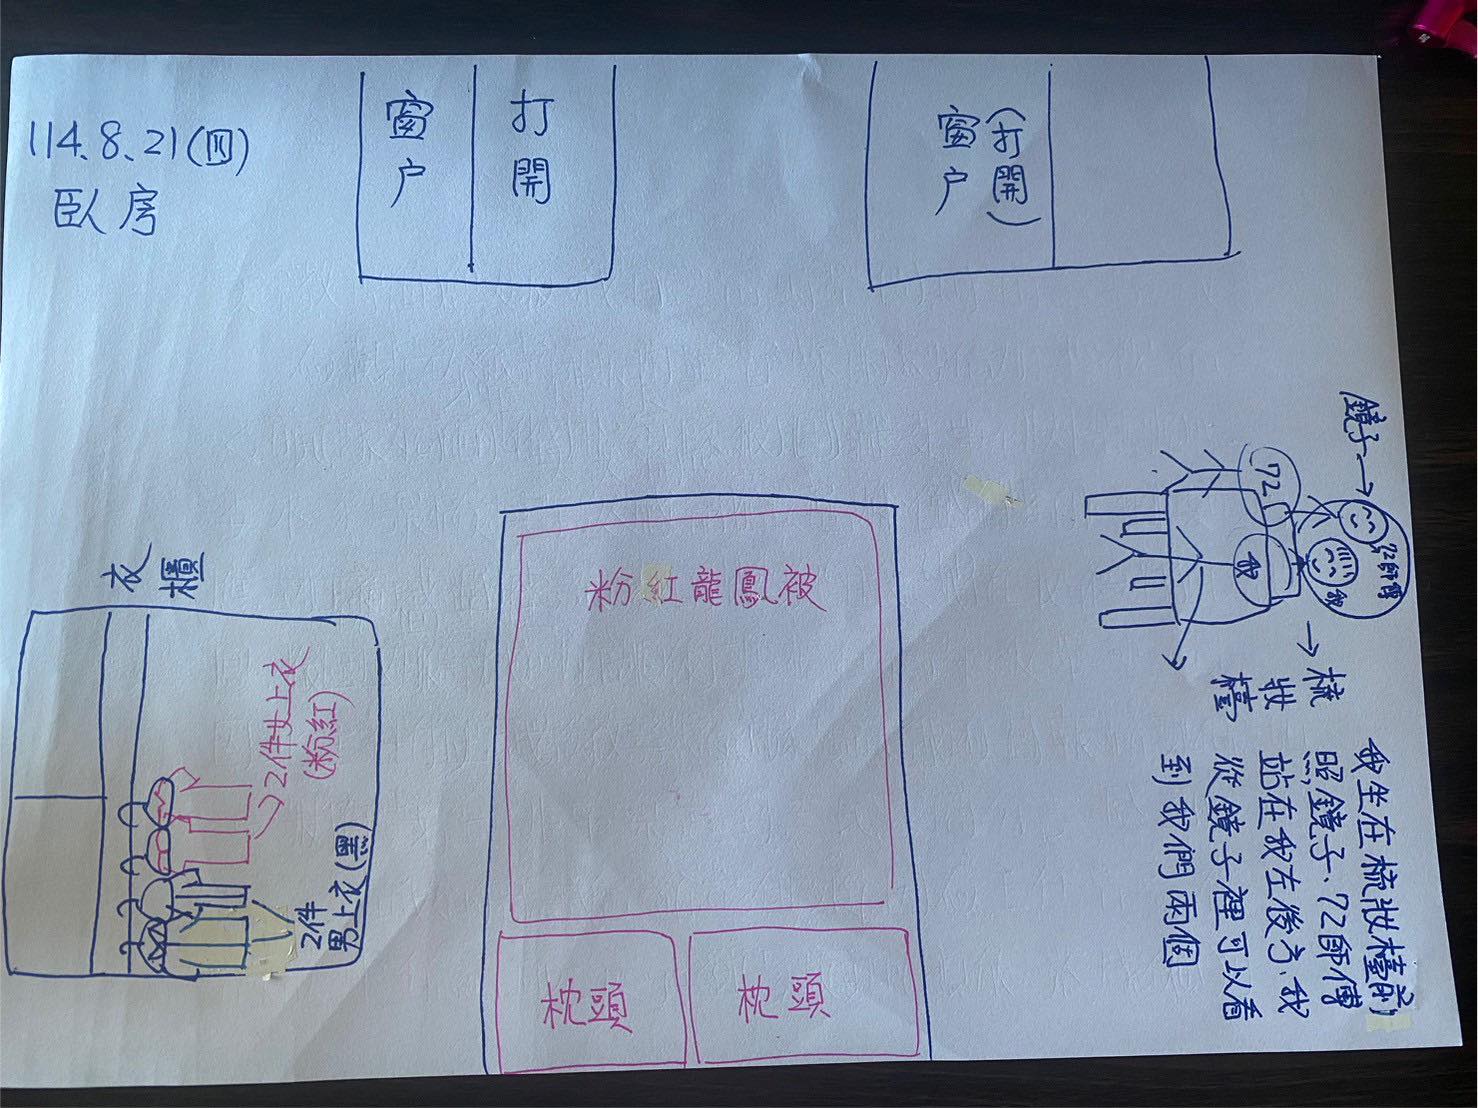 114.8.21(四)
臥房
窗戶
打開
窗戶
(打開)
鏡子→
72
我
72師傅
我
→梳妝檯
我坐在梳妝檯前
照鏡子、72師傅
站在我左後方、我
從鏡子裡可以看
到我們兩個
衣櫃
2件女上衣
(粉紅)
2件
男上衣(黑)
粉紅龍鳳被
枕頭
枕頭